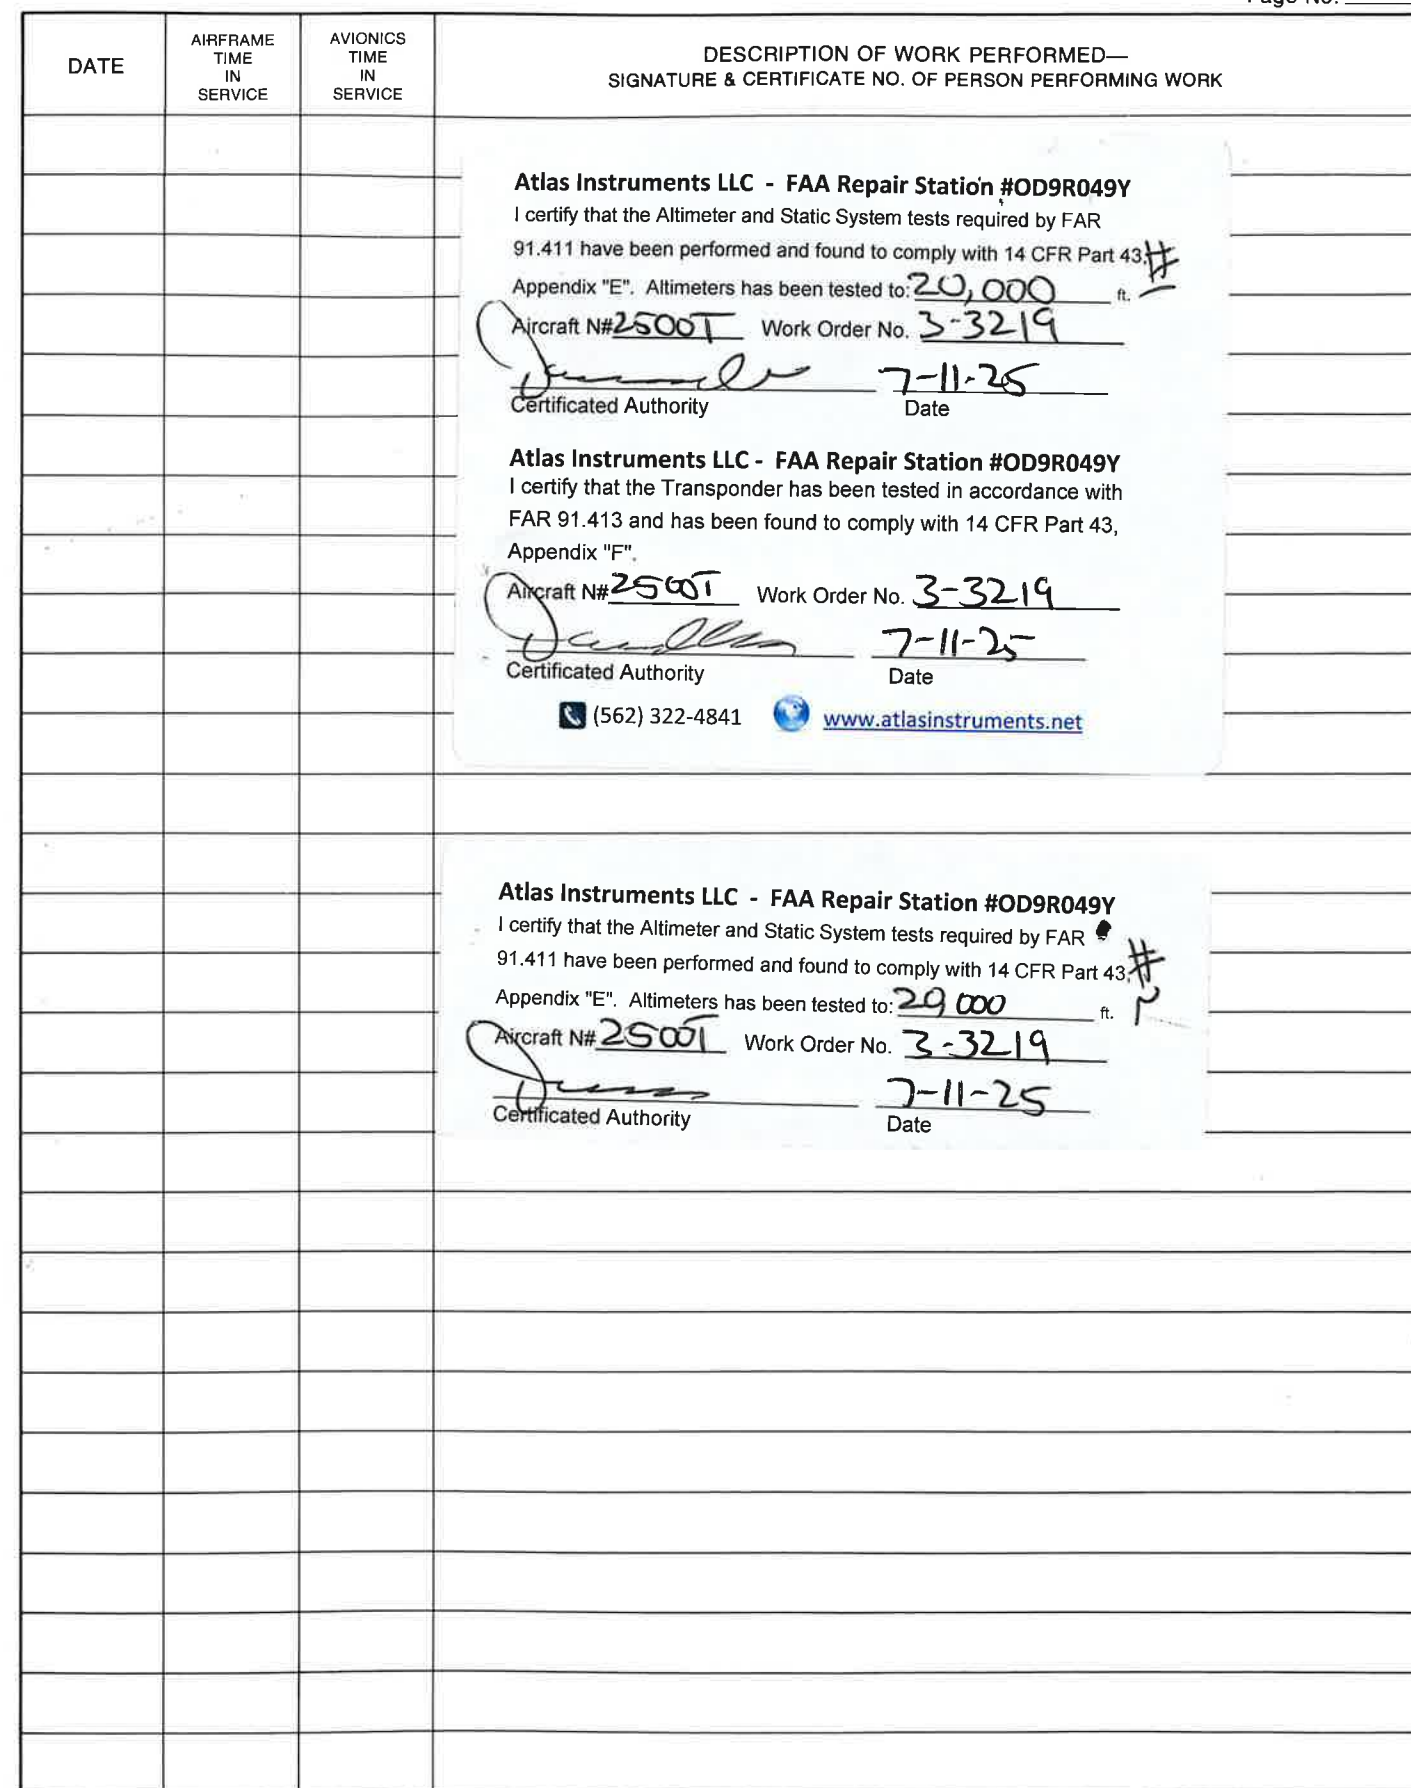 Page No.
DATE
AIRFRAME TIME IN SERVICE
AVIONICS TIME IN SERVICE
DESCRIPTION OF WORK PERFORMED—
SIGNATURE & CERTIFICATE NO. OF PERSON PERFORMING WORK
Atlas Instruments LLC - FAA Repair Station #OD9R049Y
I certify that the Altimeter and Static System tests required by FAR
91.411 have been performed and found to comply with 14 CFR Part 43, #
Appendix "E". Altimeters has been tested to: 20,000 ft.
Aircraft N# 2500T Work Order No. 3-3219
7-11-25
Certificated Authority Date
Atlas Instruments LLC - FAA Repair Station #OD9R049Y
I certify that the Transponder has been tested in accordance with
FAR 91.413 and has been found to comply with 14 CFR Part 43,
Appendix "F".
Aircraft N# 2500T Work Order No. 3-3219
7-11-25
Certificated Authority Date
(562) 322-4841 www.atlasinstruments.net
Atlas Instruments LLC - FAA Repair Station #OD9R049Y
I certify that the Altimeter and Static System tests required by FAR
91.411 have been performed and found to comply with 14 CFR Part 43, #
Appendix "E". Altimeters has been tested to: ft.
Aircraft N# 2500T Work Order No. 3-3219
7-11-25
Certificated Authority Date